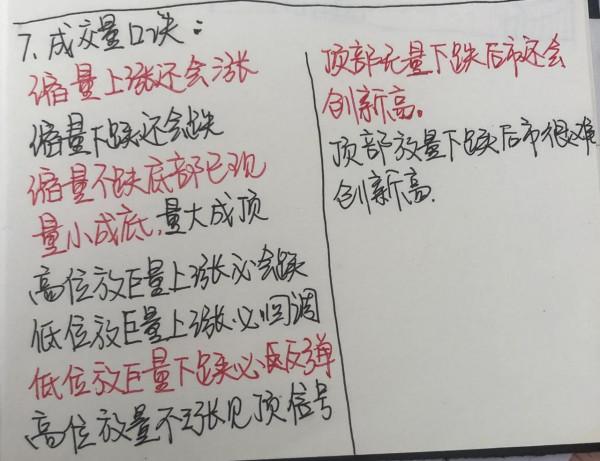 7、成交量口诀：
缩量上涨还会涨
缩量下跌还会跌
缩量不跌底部已现
量小成底，量大成顶
高位放巨量上涨必会跌
低位放巨量上涨必回调
低位放巨量下跌必反弹
高位放量不涨见顶信号
顶部无量下跌后市还会
创新高。
顶部放量下跌后市很难
创新高.